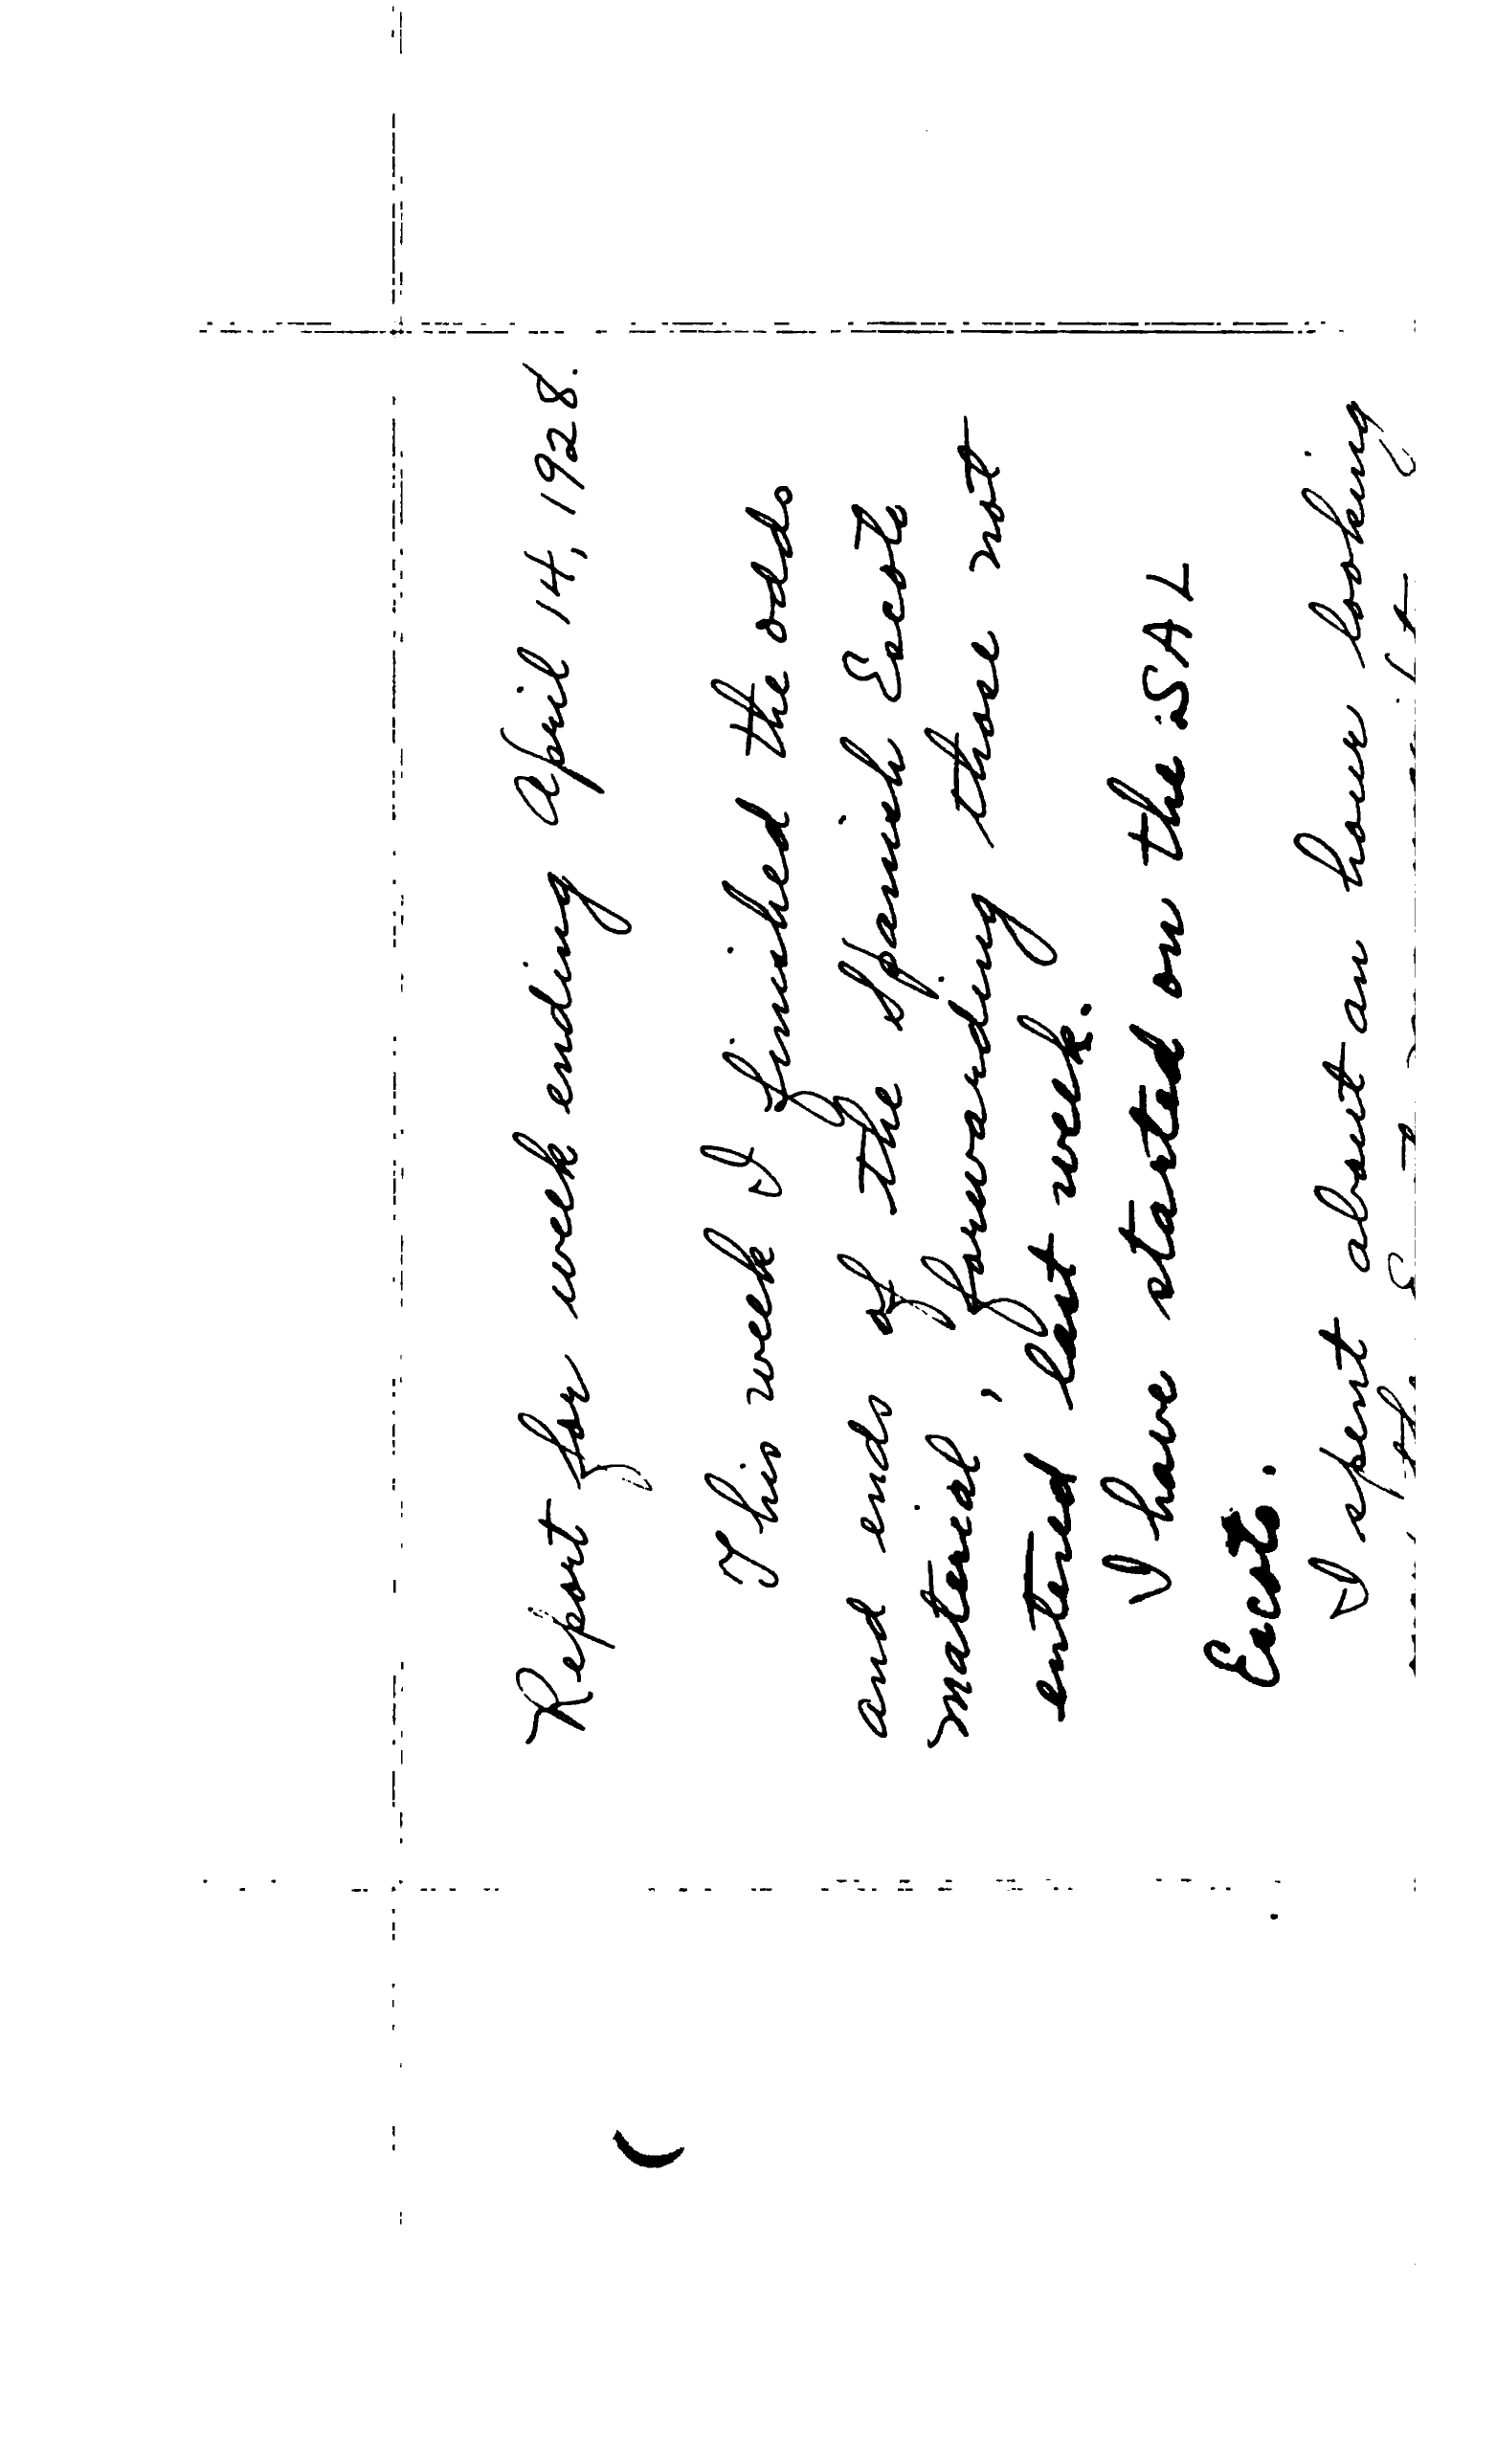 Report for week ending April 14, 1928.
This week I finished the odds
and ends of the Spanish Escts
material, forwarding those not
entered last week.
I have started on the SAL
Escts.
I spent about an hour looking